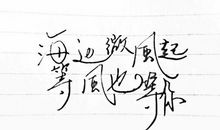 海边微風起
等風也等你